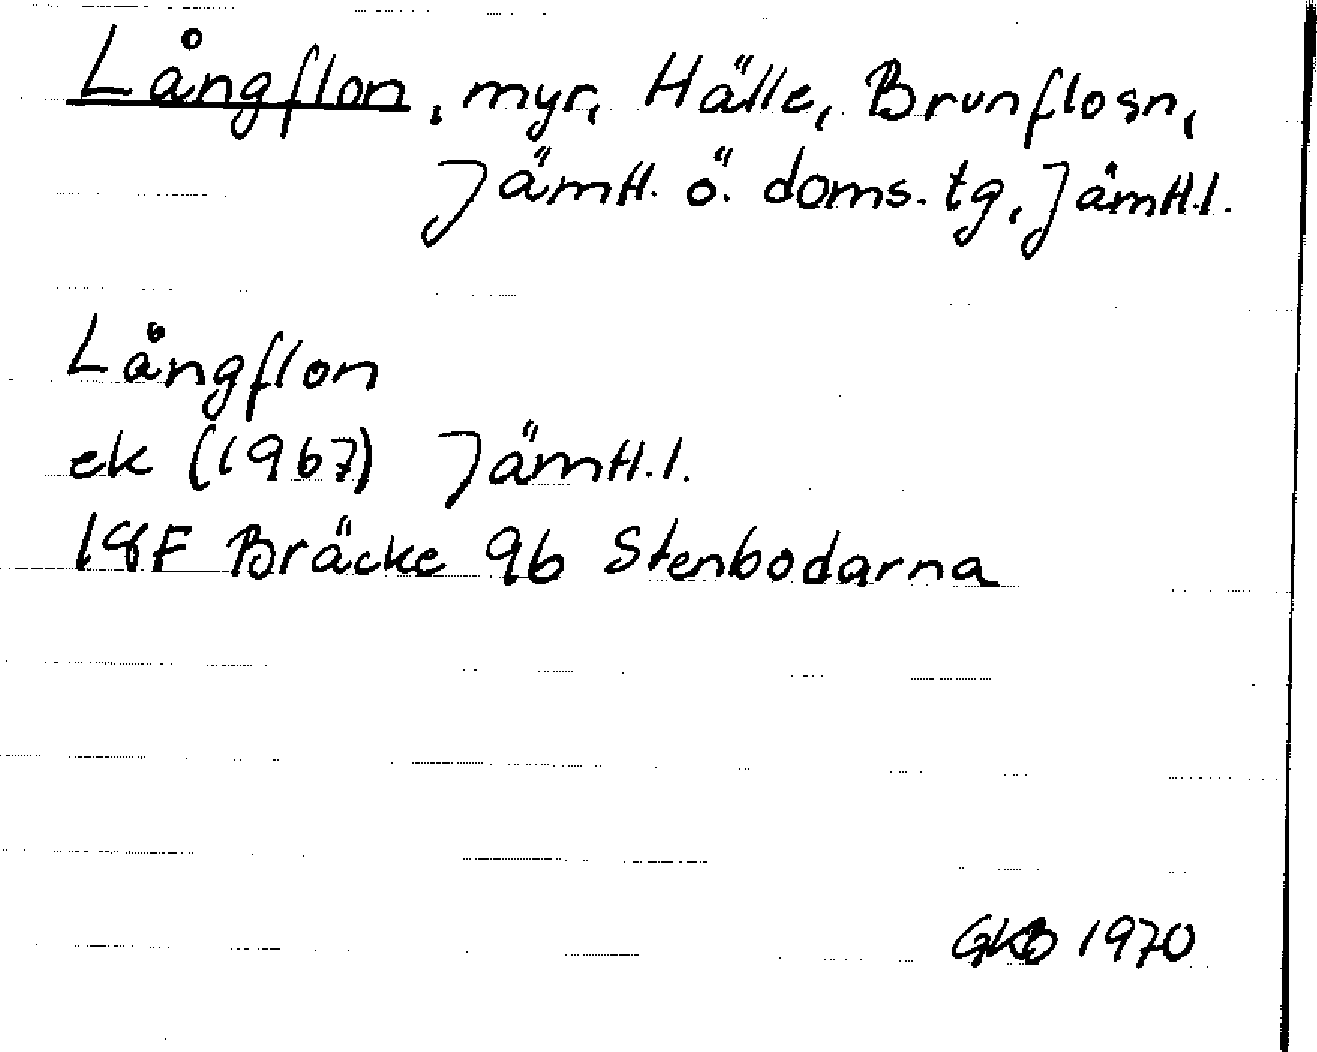 Långflon, myr, Hälle, Brunflosn,
Jämtl. ö. doms. tg, Jämtl.l.
Långflon
ek (1967) Jämtl.l.
18F Bräcke 9b Stenbodarna
GKB 1970